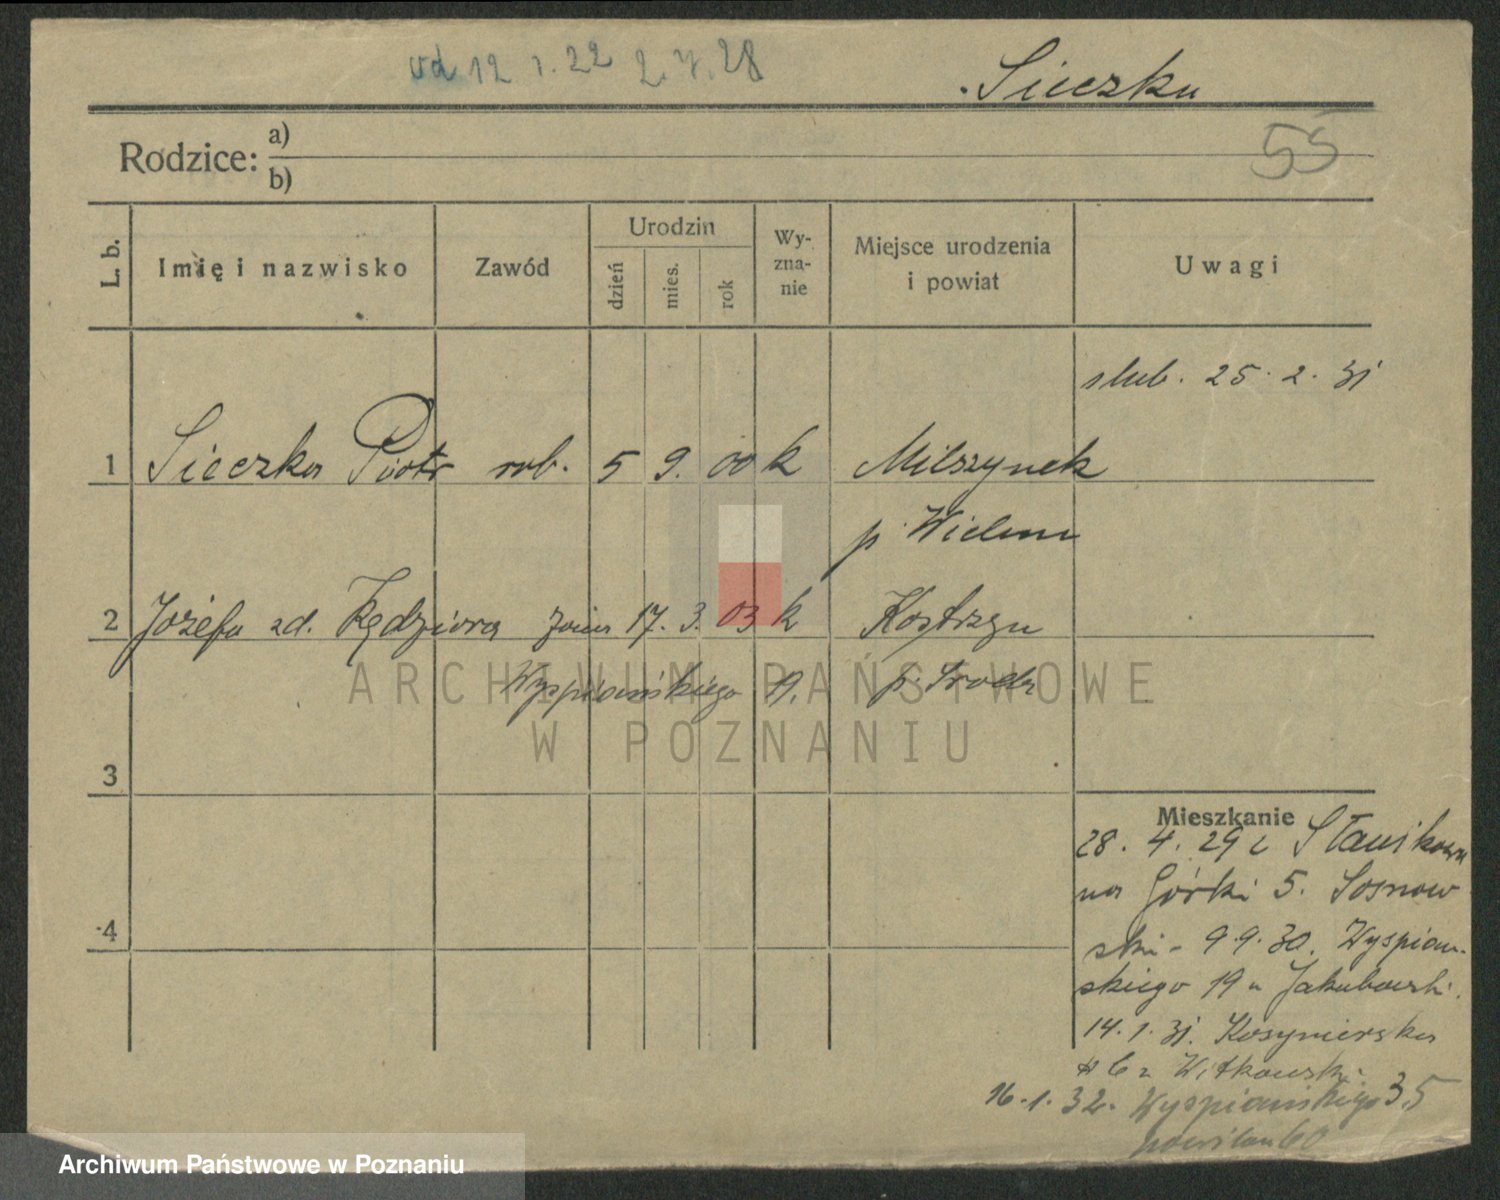 od 12 1. 22 2. 7. 28
Sieczka
55
Rodzice: a)
b)
L. b.
Imię i nazwisko
Zawód
Urodzin
dzień
mies.
rok
Wy-
zna-
nie
Miejsce urodzenia
i powiat
Uwagi
slub. 25. 2. 31
1 Sieczka Piotr rob. 5 9. 00 k Milszynek
p. Wieluń
2 Józefa zd. Kędziora żona 17. 3. 03 k Kostrzyn
Wyspiańskiego 19. p. Środa
3
4
Mieszkanie
28. 4. 29
na Górki 5. Sosnow
ski - 9.9.30. Wyspiań-
skiego 19 u Jakubowski.
14. 1. 31.
Witkowski
16. 1. 32. Wyspiańskiego 35
60
ARCHIWUM PAŃSTWOWE
W POZNANIU
Archiwum Państwowe w Poznaniu